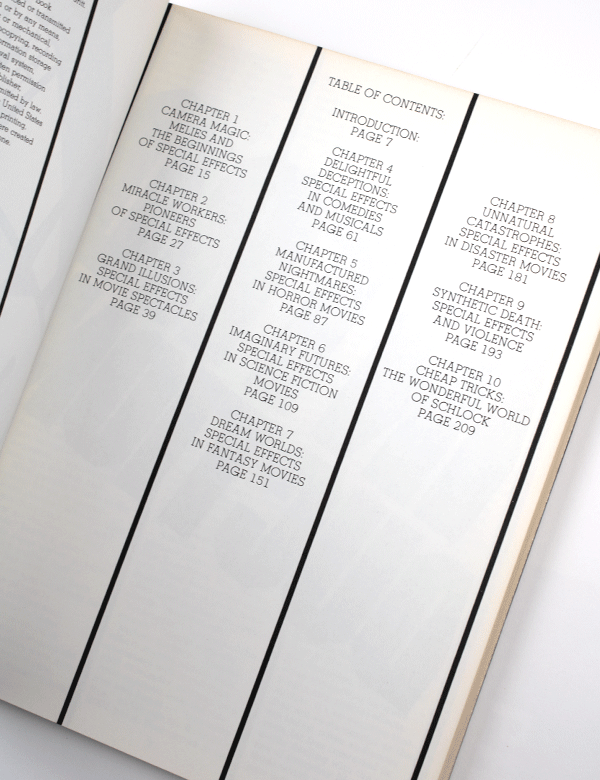 book
or transmitted
or by any means,
or mechanical,
recording
storage
system,
permission
by law.
United States
printing.
were created
TABLE OF CONTENTS:
INTRODUCTION:
PAGE 7
CHAPTER 1
CAMERA MAGIC:
MELIES AND
THE BEGINNINGS
OF SPECIAL EFFECTS
PAGE 15
CHAPTER 2
MIRACLE WORKERS:
PIONEERS
OF SPECIAL EFFECTS
PAGE 27
CHAPTER 3
GRAND ILLUSIONS:
SPECIAL EFFECTS
IN MOVIE SPECTACLES
PAGE 39
CHAPTER 4
DELIGHTFUL
DECEPTIONS:
SPECIAL EFFECTS
IN COMEDIES
AND MUSICALS
PAGE 61
CHAPTER 5
MANUFACTURED
NIGHTMARES:
SPECIAL EFFECTS
IN HORROR MOVIES
PAGE 87
CHAPTER 6
IMAGINARY FUTURES:
SPECIAL EFFECTS
IN SCIENCE FICTION
MOVIES
PAGE 109
CHAPTER 7
DREAM WORLDS:
SPECIAL EFFECTS
IN FANTASY MOVIES
PAGE 151
CHAPTER 8
UNNATURAL
CATASTROPHES:
SPECIAL EFFECTS
IN DISASTER MOVIES
PAGE 181
CHAPTER 9
SYNTHETIC DEATH:
SPECIAL EFFECTS
AND VIOLENCE
PAGE 193
CHAPTER 10
CHEAP TRICKS:
THE WONDERFUL WORLD
OF SCHLOCK
PAGE 209